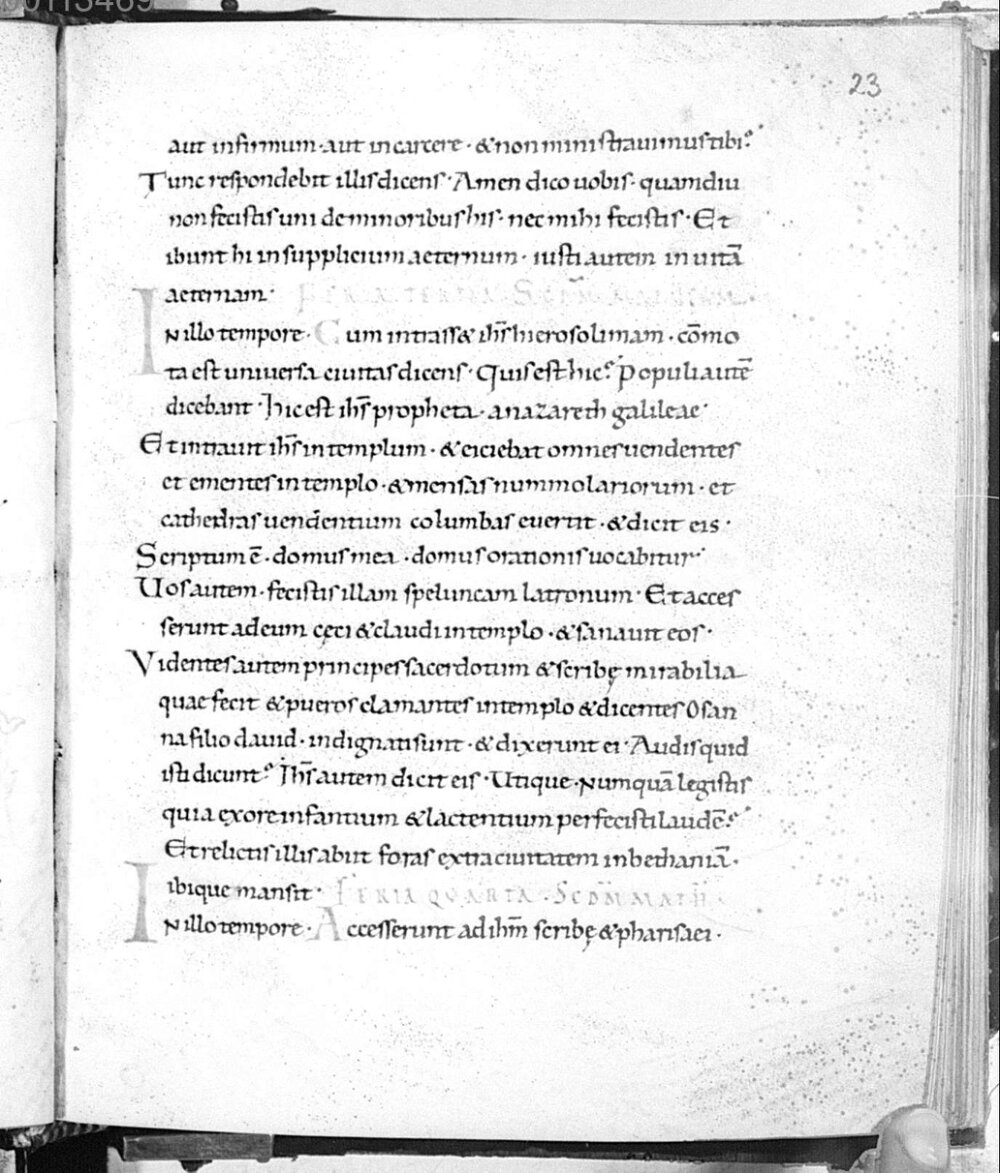 00113469
23
aut infirmum · aut incarcere · & non ministrauimus tibi?
Tunc respondebit illis dicens · Amen dico uobis · quamdiu
non fecistis uni de minoribus his · nec mihi fecistis · Et
ibunt hi in supplicium aeternum · iusti autem in uitā
aeternam · FERIA TERTIA SCDM MATHEUM
INillo tempore · Cum intrass& ihs̄ hierosolimam · cōmo
ta est uniuersa ciuitas dicens · Quis est hic? Populi autē
dicebant · hic est ihs̄ propheta · a nazareth galileae ·
Et intrauit ihs̄ in templum · & eiciebat omnes uendentes
et ementes in templo · & mensas nummolariorum · et
cathedras uendentium columbas euertit · & dicit eis ·
Scriptum ē · domus mea · domus orationis uocabitur ·
Uos autem · fecistis illam speluncam latronum · Et acces
serunt ad eum cęci & claudi in templo · & sanauit eos ·
Videntes autem principes sacerdotum & scribę mirabilia
quae fecit & pueros clamantes in templo & dicentes Osan
na filio dauid · indignati sunt · & dixerunt ei · Audis quid
isti dicunt? Ihs̄ autem dicit eis · Utique · Numquā legistis
quia ex ore infantium & lactentium perfecisti laudē?
Et relictis illis abiit foras extra ciuitatem in bethaniā ·
ibique mansit · FERIA QUARTA · SCDM MATH
INillo tempore · Accesserunt ad ihm̄ scribę & pharisaei ·